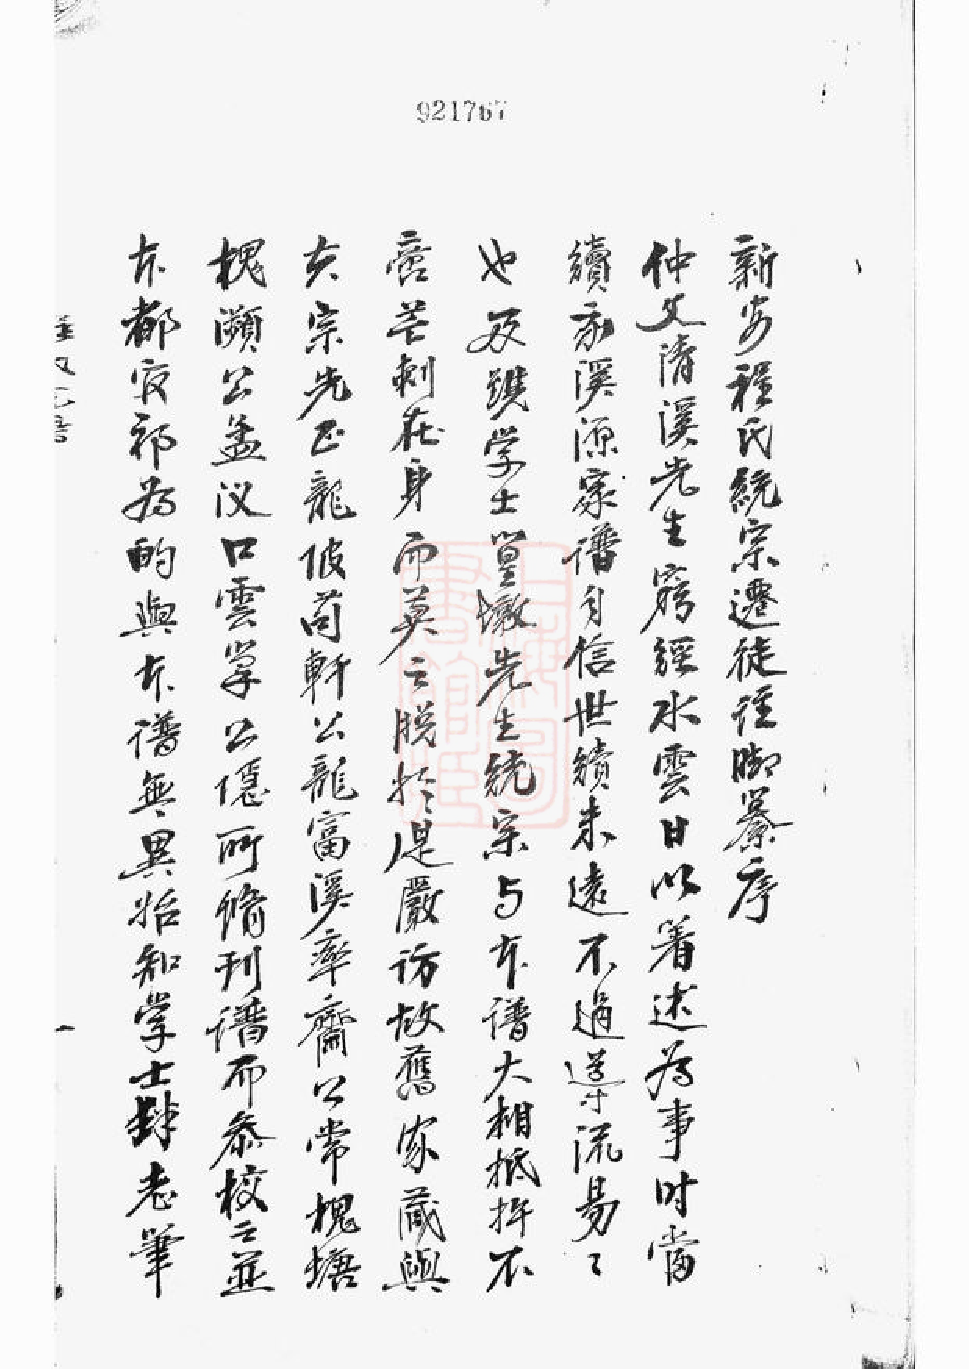 921767
新安程氏統宗遷徙注脚纂序
仲父清溪先生窮經水雲日以着述為事时當
續我溪源家譜自信世績未遠不過導流易〻
也及購学士篁墩先生統宗与本譜大相抵捍不
啻芒刺在身而莫之脱於是嚴访故舊家藏與
夫宗先正龍陂苟軒公龍富溪率齋公常槐塘
槐瀕公孟汊口雲掌公隱所脩刊譜而叅校之並
本都夜祁為的與本譜無異始知学士肆老筆
上海圖書館藏